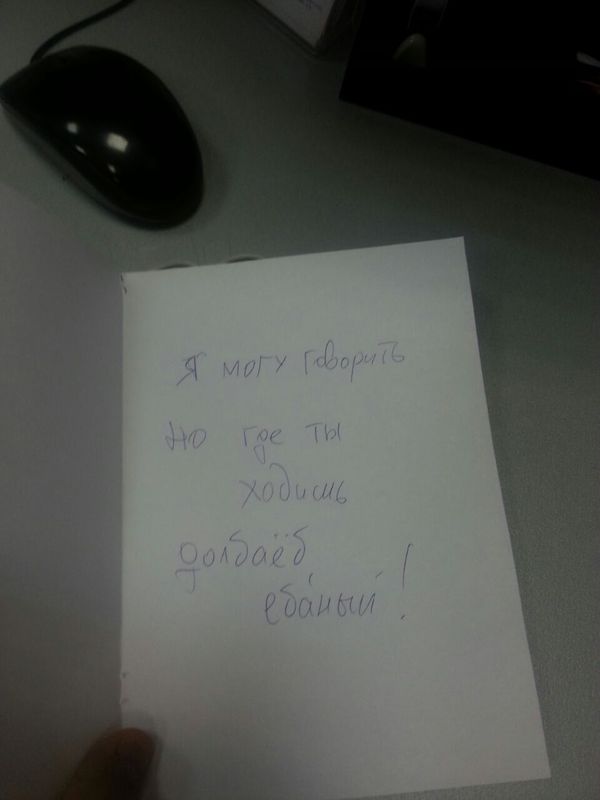 Я могу говорить
но где ты
ходишь
долбаёб
ебаный!